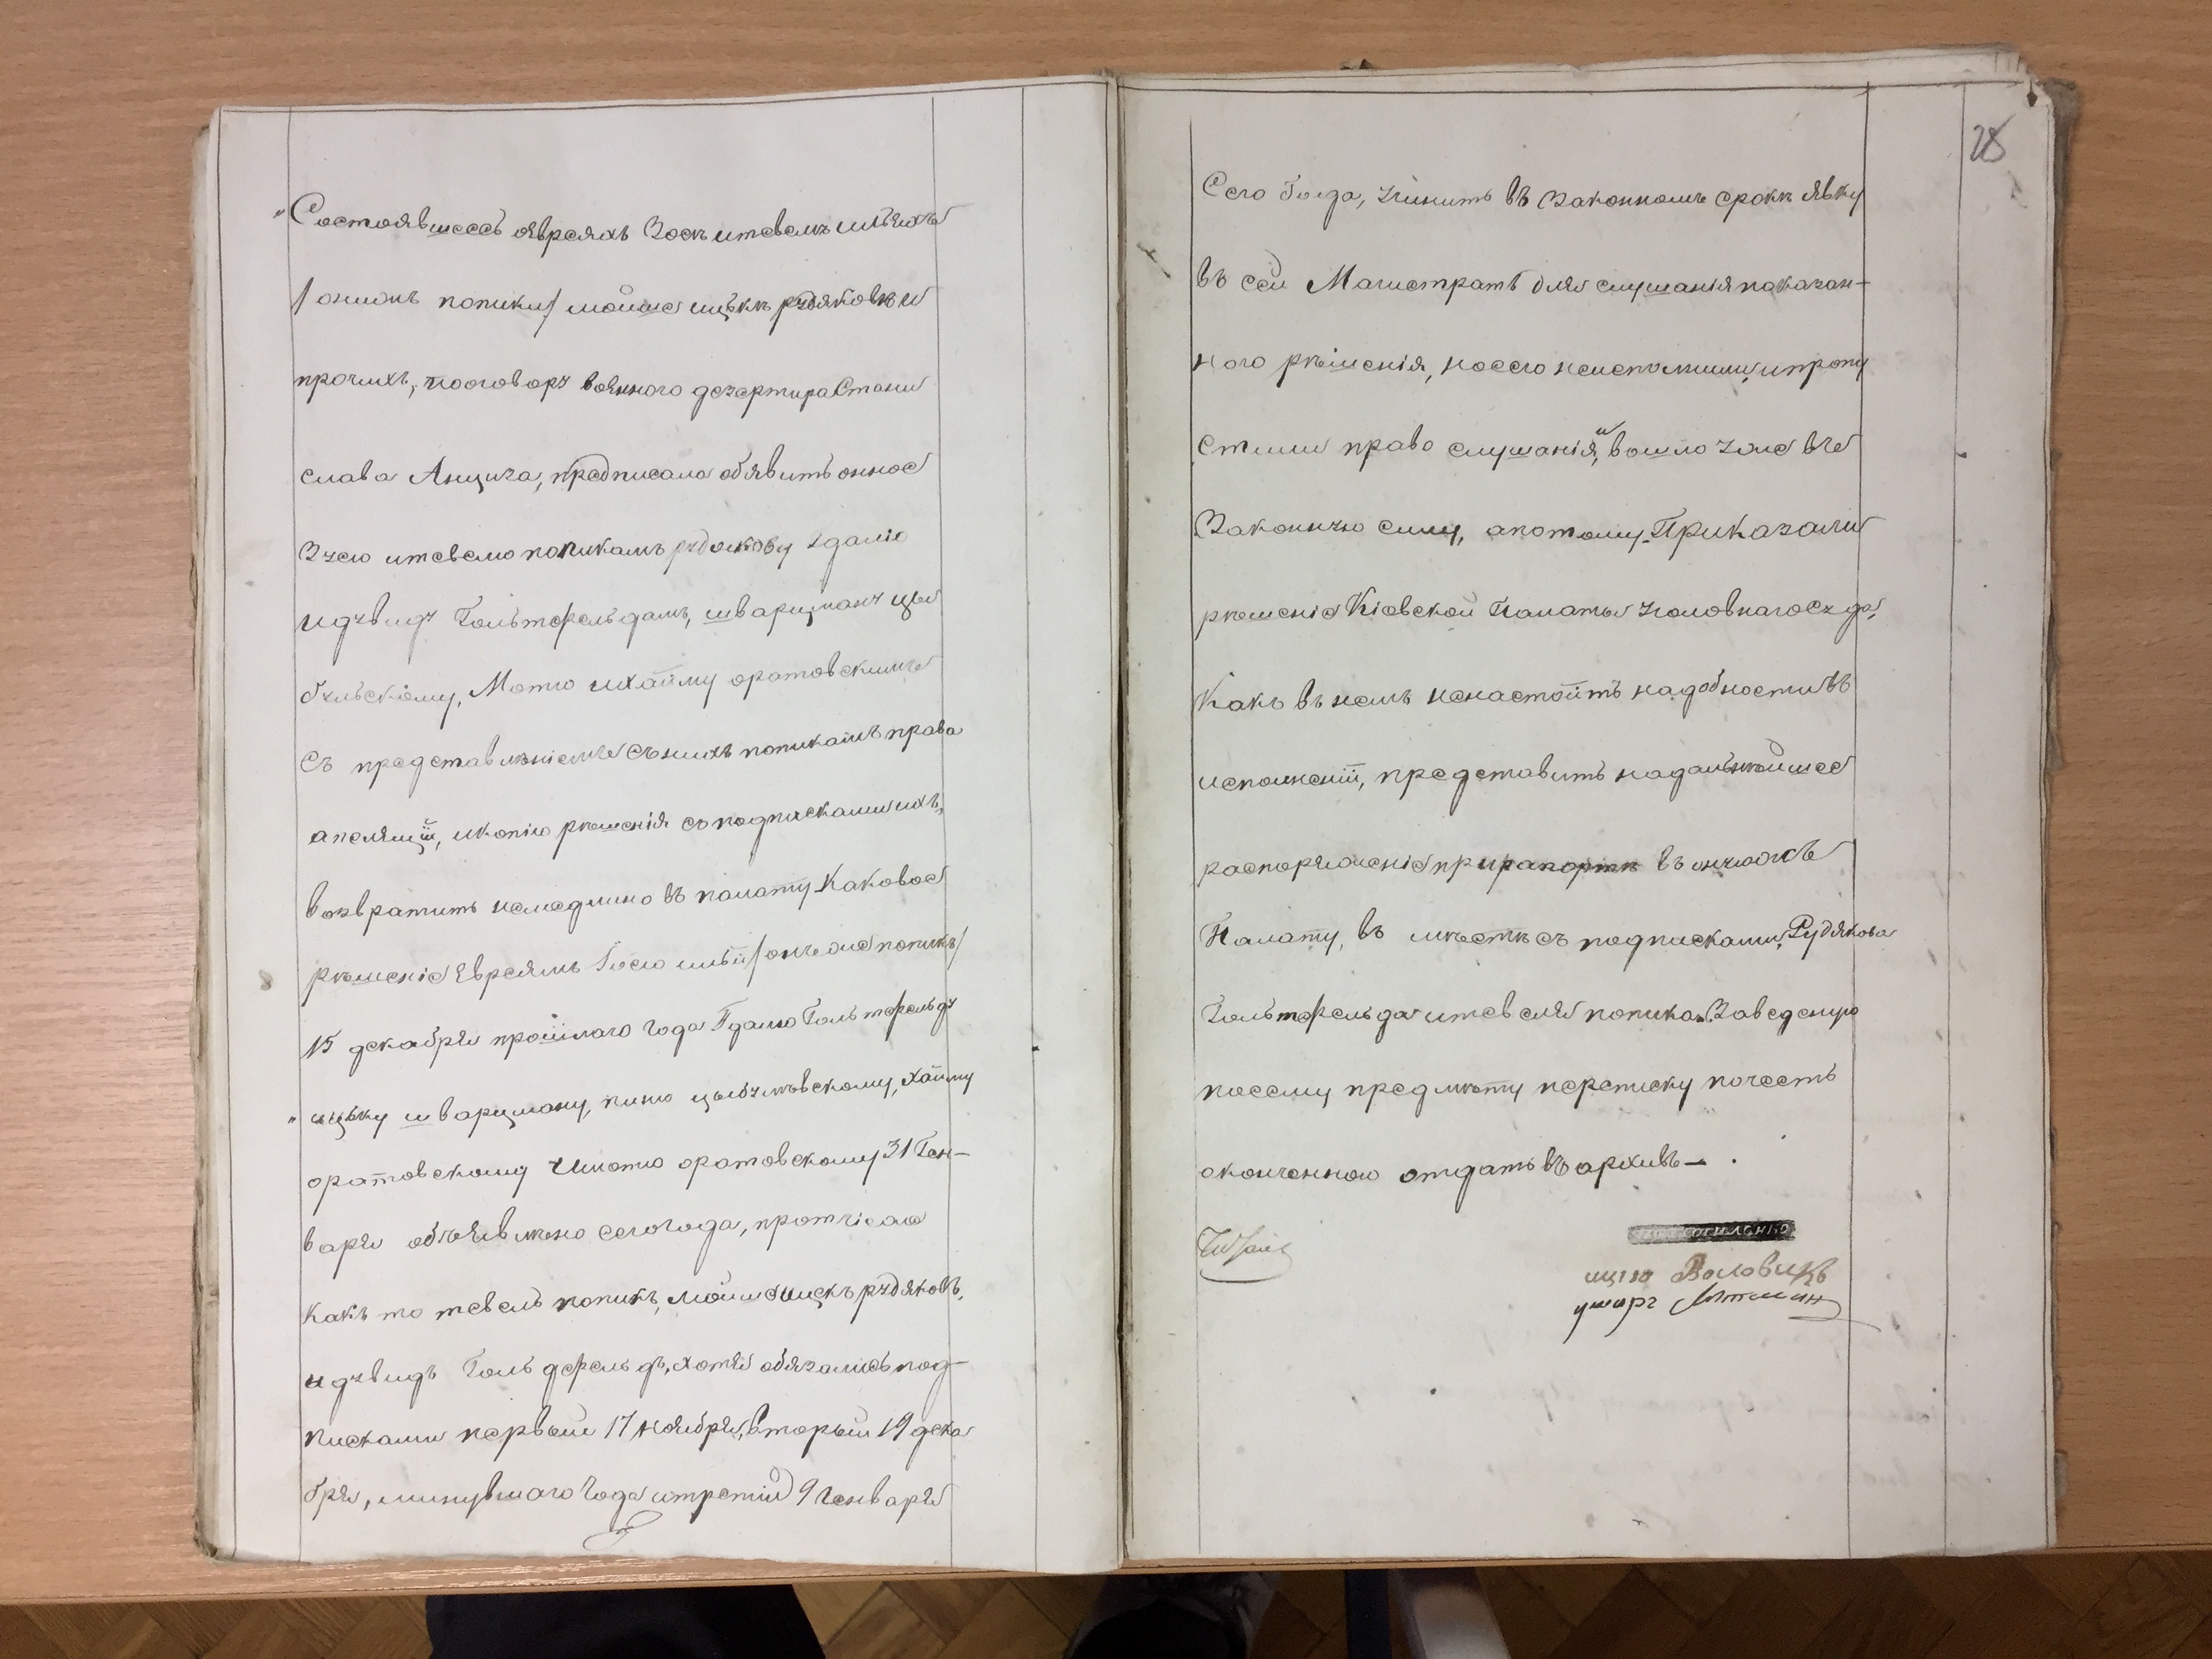 Состоявшеесь оявреяхъ Зосѣ итевелѣ шліахъ
/ онижъ попики / мойше ицькѣ рудяковѣ и
прочихъ, пооговору военного дезертира Стани
слава Анцича, предписала объявить онное
Зусю итевелю попикамъ рудякову гдалю
идувиду Гольтфельдамъ, шварцману цы
бульскому, Мотю ихаиму оратовскимъ
съ предетавленіемъ съ нихъ попикамъ права
апеляціи, икопію решенія съ подписками ихъ,
возвратить немедлено въ палату Каковое
решеніе Евреямъ Иосю / онъ же попикъ /
15 декабря прошлаго года Гдалю Гольтфельду
ицьку шварцману, пиню цыбульвскому, хаиму
оратовскому имотю оратовскому 31 Ген-
варя объявлено сего года, протчіеже
какъ то тевель попикъ, мойше ицкъ рудяковъ,
идувидъ Гольдфельдъ, хотя обязались под-
писками первый 17 ноября, вторый 19 дека
бря, минувшаго года итретій 9 Генваря
28
Сего Года, учинить въ Законномъ срокѣ явку
въ сей Магистратъ для слушанія показан-
ного решенія, носего неисполнили, ипропу
стили право слушанія, и вошло уже въ
Законную силу, апотому Приказали
решеніе Кіевской Палаты уголовнаго суда,
Какъ въ немъ ненастоитъ надобности въ
исполненіи, представить надальнейшее
распоряженіе при рапорте въ онуюжъ
Палату, въ месте съ подписками, Рудякова
Гольтфельда итевеля попика. Заведеную
посему предмету переписку почесть
оконченною отдать въ архивъ—.
Воловикъ